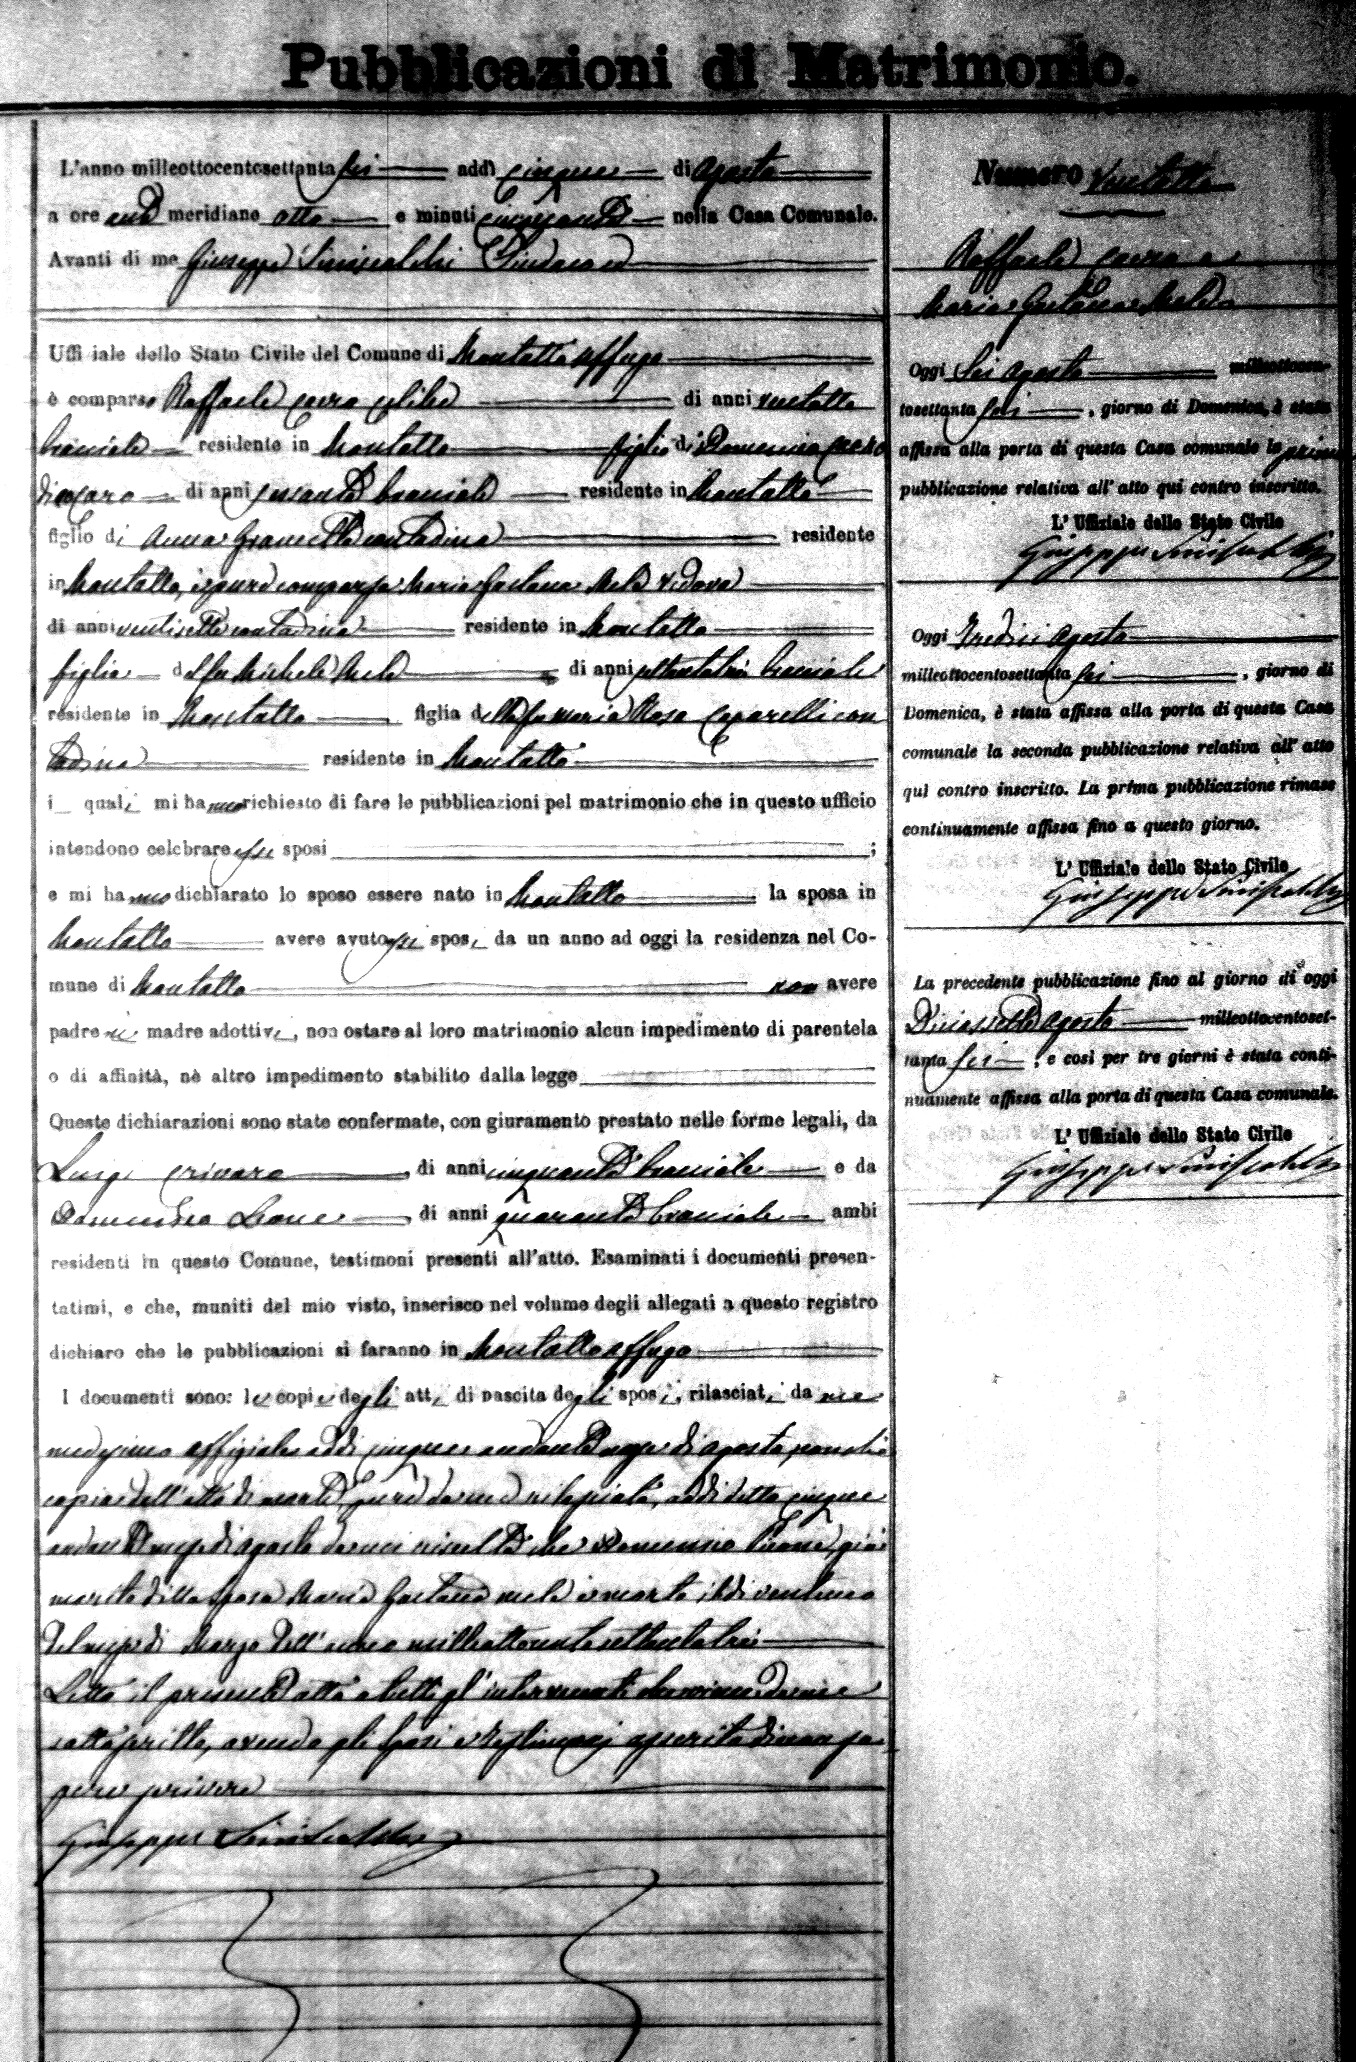 Pubblicazioni di Matrimonio.
L'anno milleottocentosettanta sei addì cinque di Agosto
a ore anti meridiane otto e minuti cinquanta nella Casa Comunale.
Avanti di me Giuseppe Siniscalchi Sindaco
Uffiiale dello Stato Civile del Comune di Montalto Uffugo
è comparso Raffaele celibe di anni ventotto
bracciale residente in Montalto figlio di Domenico
di anni sessanta bracciale residente in Montalto
figlio di Anna contadina residente
in Montalto, è pure comparsa Maria Gaetana Mele vedova
di anni ventisette contadina residente in Montalto
figlia del fu Michele Mele di anni bracciale
residente in Montalto figlia della fu Maria Rosa Caparelli con
tadina residente in Montalto
i quali mi hanno richiesto di fare le pubblicazioni pel matrimonio che in questo ufficio
intendono celebrare essi sposi ;
e mi hanno dichiarato lo sposo essere nato in Montalto la sposa in
Montalto avere avuto essi sposi da un anno ad oggi la residenza nel Co-
mune di Montalto non avere
padre nè madre adottivi, non ostare al loro matrimonio alcun impedimento di parentela
o di affinità, nè altro impedimento stabilito dalla legge
Queste dichiarazioni sono state confermate, con giuramento prestato nelle forme legali, da
Luigi Crivaro di anni cinquanta bracciale e da
Domenico Leone di anni quaranta bracciale ambi
residenti in questo Comune, testimoni presenti all'atto. Esaminati i documenti presen-
tatimi, e che, muniti del mio visto, inserisco nel volume degli allegati a questo registro
dichiaro che le pubblicazioni si faranno in Montalto Uffugo
I documenti sono: le copie degli atti di nascita degli sposi, rilasciate da me
medesimo uffiziale addì cinque andante mese di agosto, nonchè
copia dell'atto di morte pure da me rilasciata, addì detto cinque
andante mese di agosto da cui risulta che Domenico già
marito della sposa Maria Gaetana Mele è morto il dì ventuno
del mese di Marzo dell'anno milleottocentosettantatrè
Letto il presente atto a tutti gl'intervenuti da me
sottoscritto, avendo gli sposi e testimonj asserito di non sa-
pere scrivere
Giuseppe Siniscalchi
Numero ventotto
Raffaele e
Maria Gaetana Mele
Oggi sei Agosto milleottocen-
tosettanta sei, giorno di Domenica, è stata
affissa alla porta di questa Casa comunale la prima
pubblicazione relativa all'atto qui contro inscritto.
L'Uffiziale dello Stato Civile
Giuseppe Siniscalchi
Oggi tredici Agosto
milleottocentosettanta sei, giorno di
Domenica, è stata affissa alla porta di questa Casa
comunale la seconda pubblicazione relativa all'atto
quì contro inscritto. La prima pubblicazione rimase
continuamente affissa fino a questo giorno.
L'Uffiziale dello Stato Civile
Giuseppe Siniscalchi
La precedente pubblicazione fino al giorno di oggi
Diciassette Agosto milleottocentoset-
tanta sei, e così per tre giorni è stata conti-
nuamente affissa alla porta di questa Casa comunale.
L'Uffiziale dello Stato Civile
Giuseppe Siniscalchi